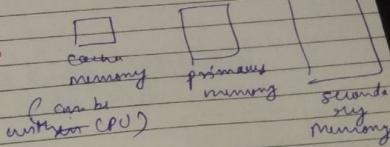 cache
memory
( can be
within CPU)
primary
memory
seconda
ry
memory